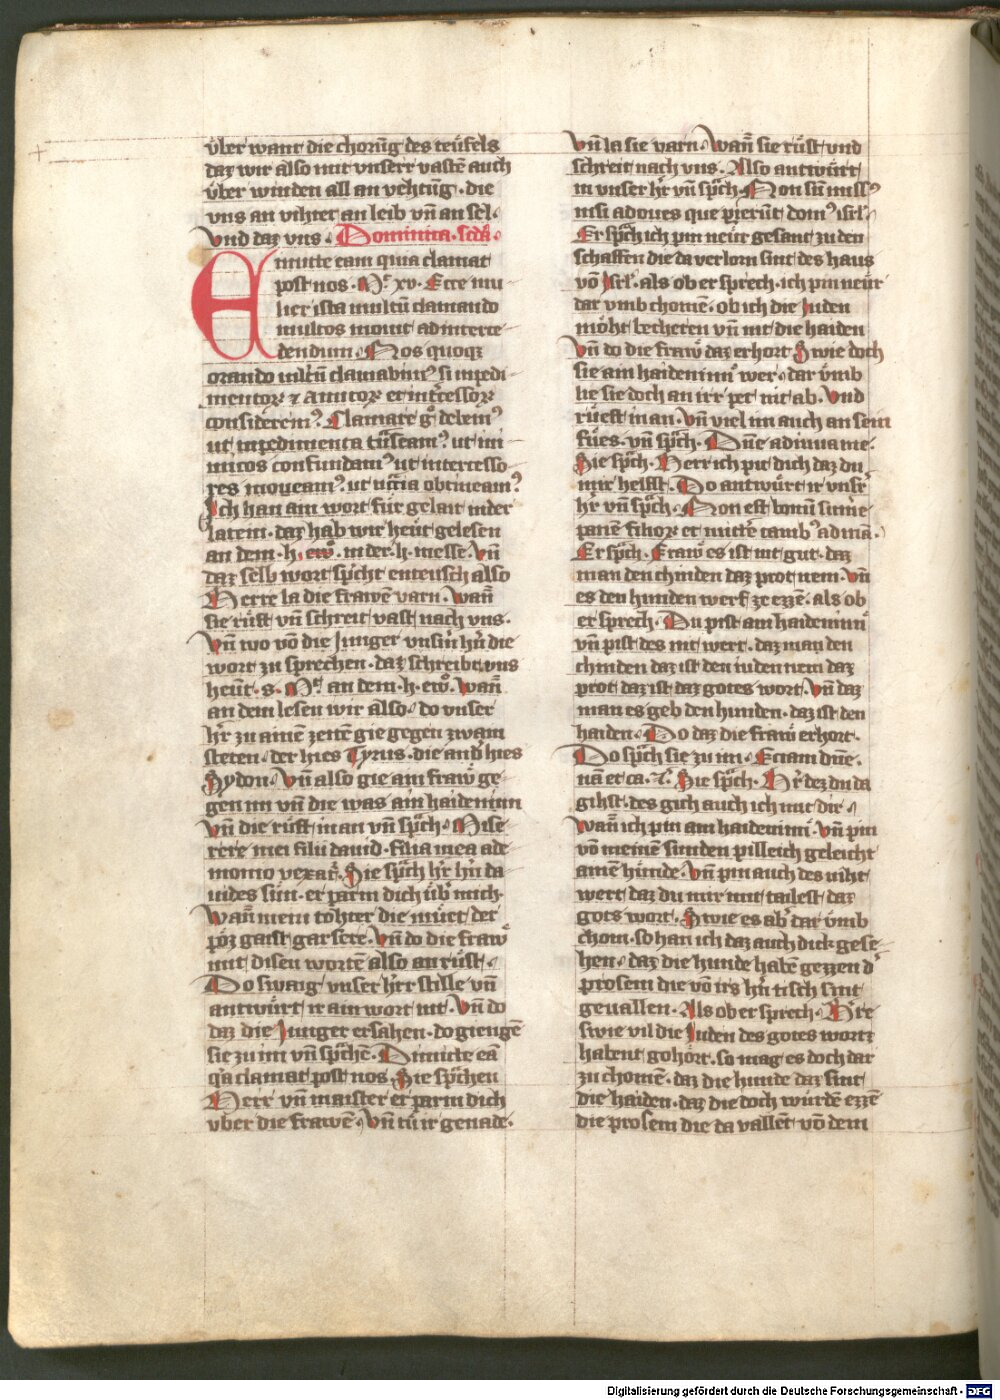 über want die chorūg des teüfels
daz wir also mit vnserr vastē auch
über winden all an vehtūg · die
vns an vihtet an leib vn̄ an sel·
Vnd daz vns · Dominica · scda ·
Dimitte eam quia clamat
post nos · Mt xv · Ecce mu
lier ista multū clamando
multos mouit ad interce-
dendum · Nos quoqz
orando mltū clamabimꝰ si inpedi-
mentorꝝ et amicorꝝ et intcessorꝝ
consideremꝰ · Clamare gͦ debemꝰ
ut inpedimenta tͣnseam? ut ini-
micos confundamꝰ ut intercesso-
res moueamꝰ · ut uenia obtineamꝰ
Ich han ain wort für gelait in der
latein · daz hab wir heüt gelesen
an dem · h · ew̄ · in der · h · messe · Vn̄
daz selb wort spricht enteusch also
Herre la die frawē varn · Wan̄
sie rüft vn̄ schreit vast nach vns ·
Vn̄ wo vō die Junger vnsm̄ hn̄ die
wort zu sprechen · daz schreibt vns
heüt · s · Mt an dem · h · ew̄ · Wan̄
an dem lesen wir also · do vnser
hr zu ainē zeitē gie gegen zwain
steten · der hies Tyrus · die and hies
Sydon · Vn̄ also gie ain fraw ge-
gen im vn̄ die was ain haideninn
Vn̄ die rüft in an vn̄ sprach · Mise-
rere mei filii dauid · filia mea a de-
monio vexat · Sie sprach hr hn̄ da
uides sün · er parm dich üb mich ·
Wan̄ mein tohter die müet der
pöz gaist gar sere · Vn̄ do die fraw
mit disen wortē also an rüft ·
Do swaig vnser herr stille vn̄
antwürt ir ain wort nit · Vn̄ do
daz die Junger ersahen · do giengē
sie zu im vn̄ sprachē · Dimitte eā
qͣ clamat post nos · Sie sprachen
Herr vn̄ maister er parm dich
vber die frawē · Vn̄ tü ir genade ·
Vn̄ la sie varn · Wan̄ sie rüft vnd
schreit nach vns · Also antwürt
in vnser hr vn̄ sprach · Non sū missꝰ
nisi ad oues que perierūt domꝰ isrl ·
Er sprach ich pin neür gesant zu den
schaffen die da verlorn sint des haus
vō Isrl · als ob er sprech · ich pin neür
dar vmb chomē · ob ich die Juden
möht becheren vn̄ nit die haiden
Vn̄ do die fraw daz erhort Swie doch
sie ain haideninn wer · dar vmb
lie sie doch an irr pet nit ab · Vnd
rüeft in an · Vn̄ viel im auch an sein
füez · vn̄ sprach · Dn̄e adiuua me ·
Sie sprach · Herr ich pit dich daz du
mir helfst · Do antwürt ir vnser
hr vn̄ sprach · Non est bonū sumē
panē filiorꝝ et mittē canibꝰ ad mā ·
Er sprach · Fraw es ist nit gut · daz
man den chinden daz prot nem · vn̄
es den hunden werf ze ezzē · als ob
er sprech · Du pist ain haideninn
vn̄ pist des nit wert · daz man den
chinden daz ist den iuden nem daz
prot · daz ist daz gotes wort · Vn̄ daz
man es geb den hunden · daz ist den
haiden · Do daz die fraw erhort ·
Do sprach sie zu im · Eciam dn̄e ·
nā et ca · τc · Sie sprach · Hr dez du da
gihst · des gich auch ich mit dir ·
Wan̄ ich pin ain haideninn · Vn̄ pin
vō meinē sünden pilleich geleicht
ainē hünde · Vn̄ pin auch des niht
wert · daz du mir mit tailest daz
gots wort · Swie es ab dar vmb
chom · so han ich daz auch dick gese-
hen · daz die hunde habē gezzen d
prosem die vō irs hn̄ tisch sint
geuallen · Als ob er sprech · Hre
swie vil die Juden des gotes wortz
habent gehört · so mag es doch dar
zu chomē · daz die hunde daz sint
die haiden · daz die doch würdē ezzē
die prosem die da vallēt vō dem
Digitalisierung gefördert durch die Deutsche Forschungsgemeinschaft - DFG